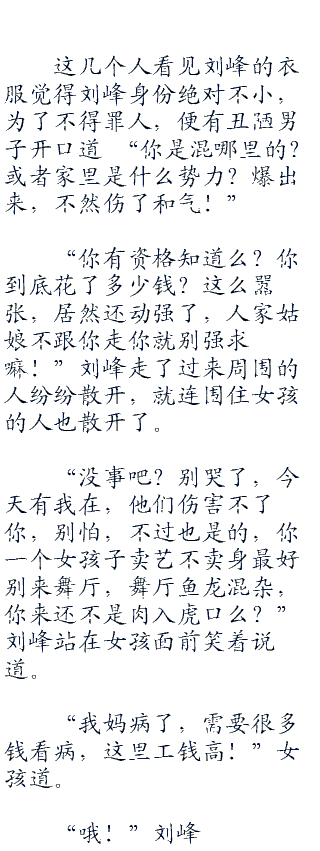 这几个人看见刘峰的衣
服觉得刘峰身份绝对不小，
为了不得罪人，便有丑陋男
子开口道 “你是混哪里的？
或者家里是什么势力？爆出
来，不然伤了和气！”
“你有资格知道么？你
到底花了多少钱？这么嚣
张，居然还动强了，人家姑
娘不跟你走你就别强求
嘛！” 刘峰走了过来周围的
人纷纷散开，就连围住女孩
的人也散开了。
“没事吧？别哭了，今
天有我在，他们伤害不了
你，别怕，不过也是的，你
一个女孩子卖艺不卖身最好
别来舞厅，舞厅鱼龙混杂，
你来还不是肉入虎口么？”
刘峰站在女孩面前笑着说
道。
“我妈病了，需要很多
钱看病，这里工钱高！” 女
孩道。
“哦！” 刘峰